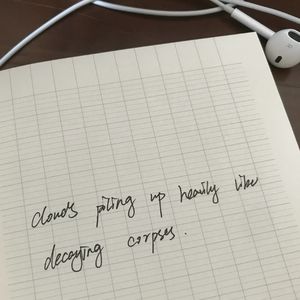 clouds piling up heavily like
decaying corpses.